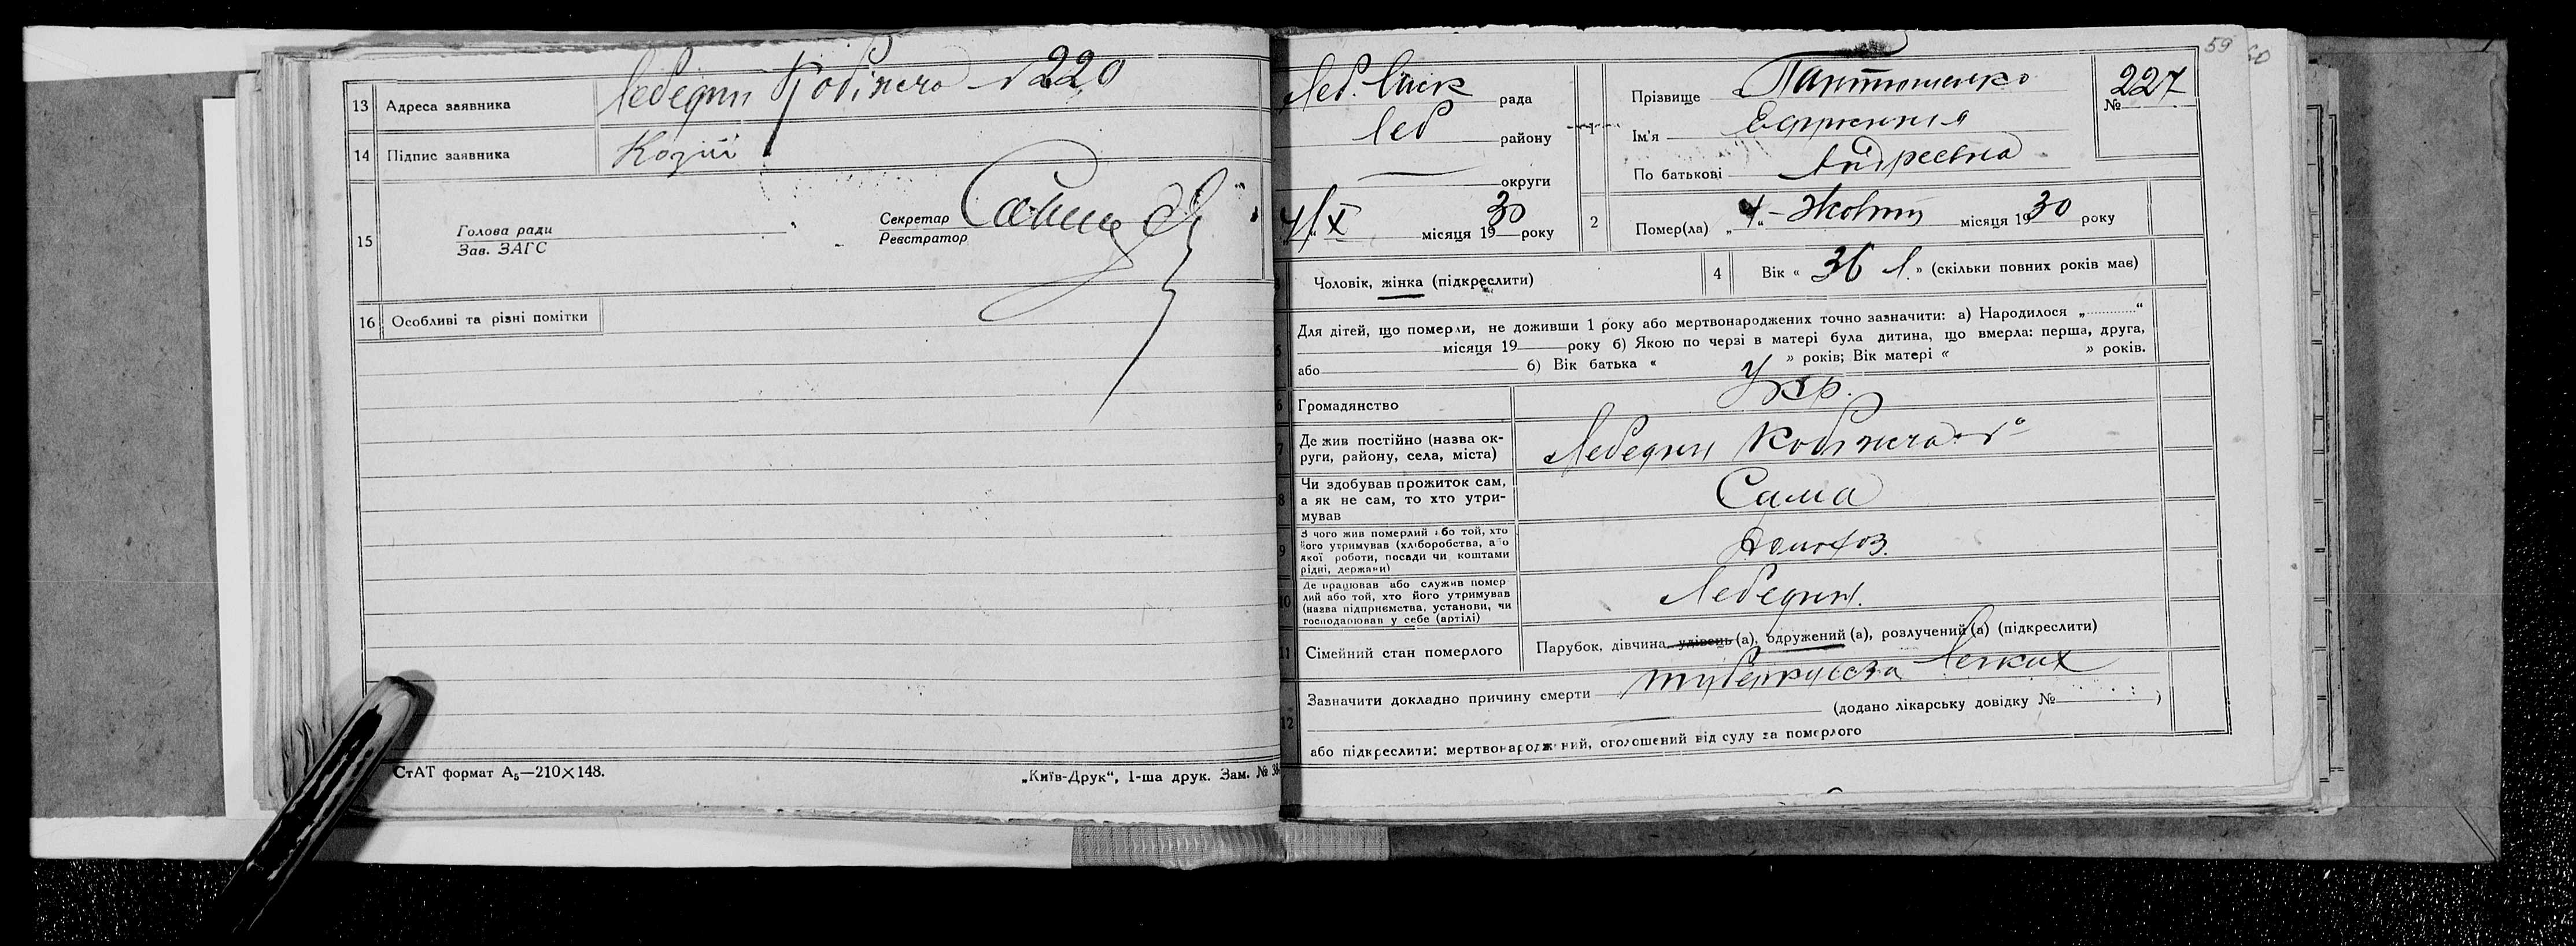 13 Адреса заявника Лебедин Кобижча №220
14 Підпис заявника Козій
15 Голова ради
Зав. ЗАГС
Секретар
Реєстратор
16 Особливі та різні помітки
СтАТ формат А5—210×148.
„Київ-Друк“, 1-ша друк. Зам. № 38
59
Леб. рада
Леб району
округи
4/X місяця 1930 року
1 Прізвище
Ім'я
По батькові Андреевна
№ 227
2 Помер(ла) „4“ Жовтн місяця 1930 року
Чоловік, жінка (підкреслити)
4 Вік « 36 л. » (скільки повних років має)
Для дітей, що померли, не доживши 1 року або мертвонароджених точно зазначити: а) Народилося „ “
місяця 19 року б) Якою по черзі в матері була дитина, що вмерла: перша, друга,
або б) Вік батька « » років; Вік матері « » років.
6 Громадянство Укр.
7 Де жив постійно (назва ок-
руги, району, села, міста) Лебедин Кобижча
8 Чи здобував прожиток сам,
а як не сам, то хто утри-
мував Сама
9 З чого жив померлий або той, хто
його утримував (хліборобства, або
якої роботи, посади чи коштами
рідні, держави) Домохоз.
10 Де працював або служив помер
лий або той, хто його утримував
(назва підприємства, установи, чи
господарював у себе (артілі) Лебедин.
11 Сімейний стан померлого Парубок, дівчина, удівець (а), одружений (а), розлучений (а) (підкреслити)
12 Зазначити докладно причину смерти туберкульоза легких
(додано лікарську довідку № )
або підкреслити: мертвонароджений, оголошений від суду за померлого